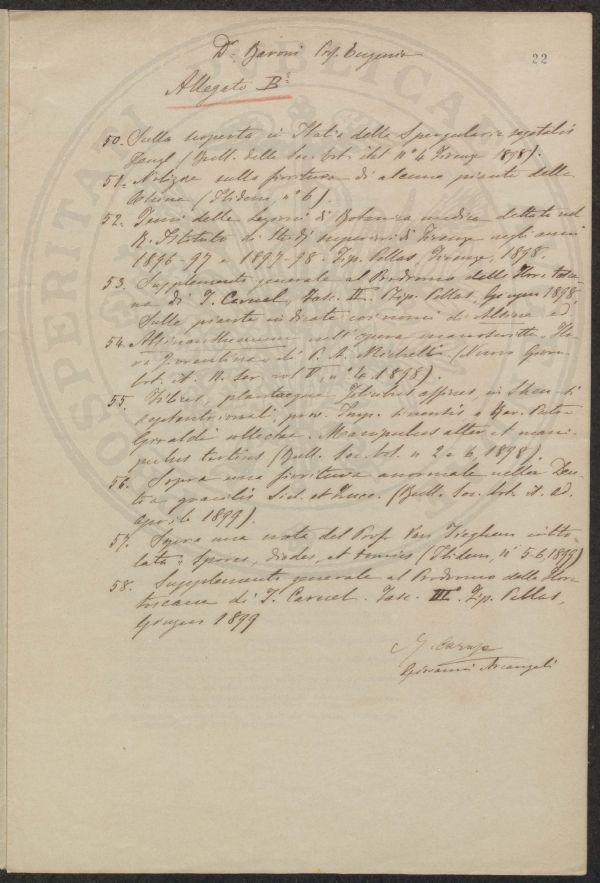 Dr. Baroni Prof. Eugenio
22
Allegato B°
50. Sulla scoperta in Italia della Spergularia segetalis
Fenzl (Bull. della Soc. bot. ital. n° 4 Firenze 1898).
51. Notizie sulla fioritura di alcune piante della
(Ibidem, n° 6).
52. Sunti delle Lezioni di Botanica medica dettate nel
R. Istituto di Studi superiori di Firenze negli anni
1896-97 e 1897-98. Tip. Pellas, Firenze, 1898.
53. Supplemento generale al Prodromo della Flora tosca-
na di T. Caruel, Fasc. II°. Tip. Pellas, Giugno 1898.
54. Sulle piante indicate coi nomi di Alsine ed
Alsinanthemum nell'opera manoscritta "Flo-
ra Florentina" di P. A. Micheli (Nuovo Giorn.
bot. it. N. Ser. vol V, n° 4 1898).
55. Filices, plantaeque Filicibus affines, in Shen-si
septentrionali, prov. Imp. sinensis a Rev. Patre
Giraldi collectae. Manipulus alter et mani-
pulus tertius (Bull. Soc. bot. n 2 e 6, 1898).
56. Sopra una fioritura anormale nella Deu-
tzia gracilis Sieb. et Zucc. (Bull. Soc. bot. it. ad.
aprile 1899).
57. Sopra una nota del Prof. Van Tieghem intito-
lata "Spores, diodes, et tomies (Ibidem, n° 5-6 1899)
58. Supplemento generale al Prodromo della Flora
toscana di T. Caruel. Fasc. III°. Tip. Pellas,
Giugno 1899
G. Caruso
Giovanni Arcangeli